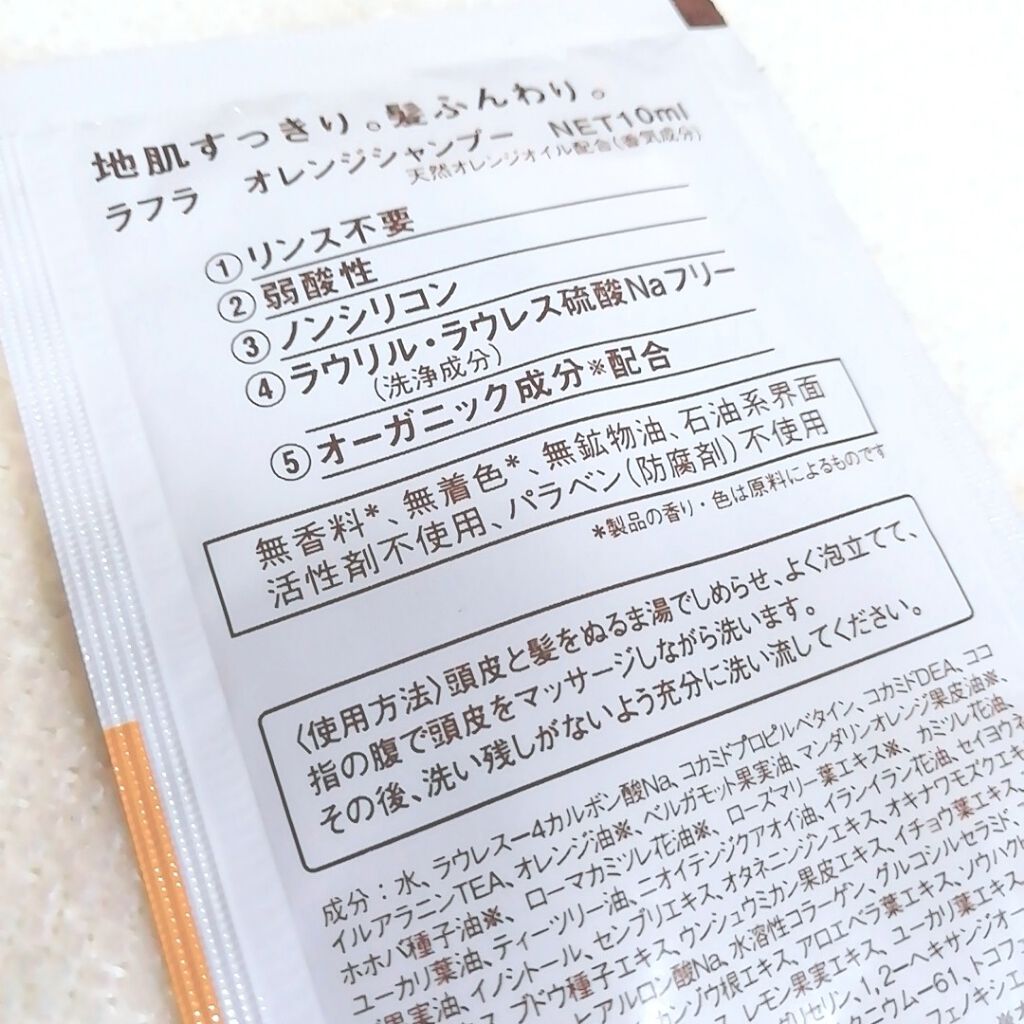 地肌すっきり。髪ふんわり。
ラフラ オレンジシャンプー NET10ml
天然オレンジオイル配合(香気成分)
①リンス不要
②弱酸性
③ノンシリコン
④ラウリル・ラウレス硫酸Naフリー
(洗浄成分)
⑤オーガニック成分※配合
無香料*、無着色*、無鉱物油、石油系界面
活性剤不使用、パラベン(防腐剤)不使用
*製品の香り・色は原料によるものです
〈使用方法〉頭皮と髪をぬるま湯でしめらせ、よく泡立てて、
指の腹で頭皮をマッサージしながら洗います。
その後、洗い残しがないよう充分に洗い流してください。
成分:水、ラウレスー4カルボン酸Na、コカミドプロピルベタイン、コカミドDEA、ココ
イルアラニンTEA、オレンジ油※、ベルガモット果実油、マンダリンオレンジ果皮油※、
ホホバ種子油※、ローマカミツレ花油※、ローズマリー葉エキス※、カミツレ花油、
ユーカリ葉油、ティーツリー油、ニオイテンジクアオイ油、イランイラン花油、セイヨウネ
果実油、イノシトール、センブリエキス、オタネニンジンエキス、オキナワモズクエキ
ブドウ種子エキス、ウンシュウミカン果皮エキス、イチョウ葉エキス、
ヒアルロン酸Na、水溶性コラーゲン、グルコシルセラミド、
カンゾウ根エキス、アロエベラ葉エキス、ソウハクヒ
レモン果実エキス、ユーカリ葉エキス、
グリセリン、1,2ーヘキサンジオー
タニウムー61、トコフェ
フェノキシエ